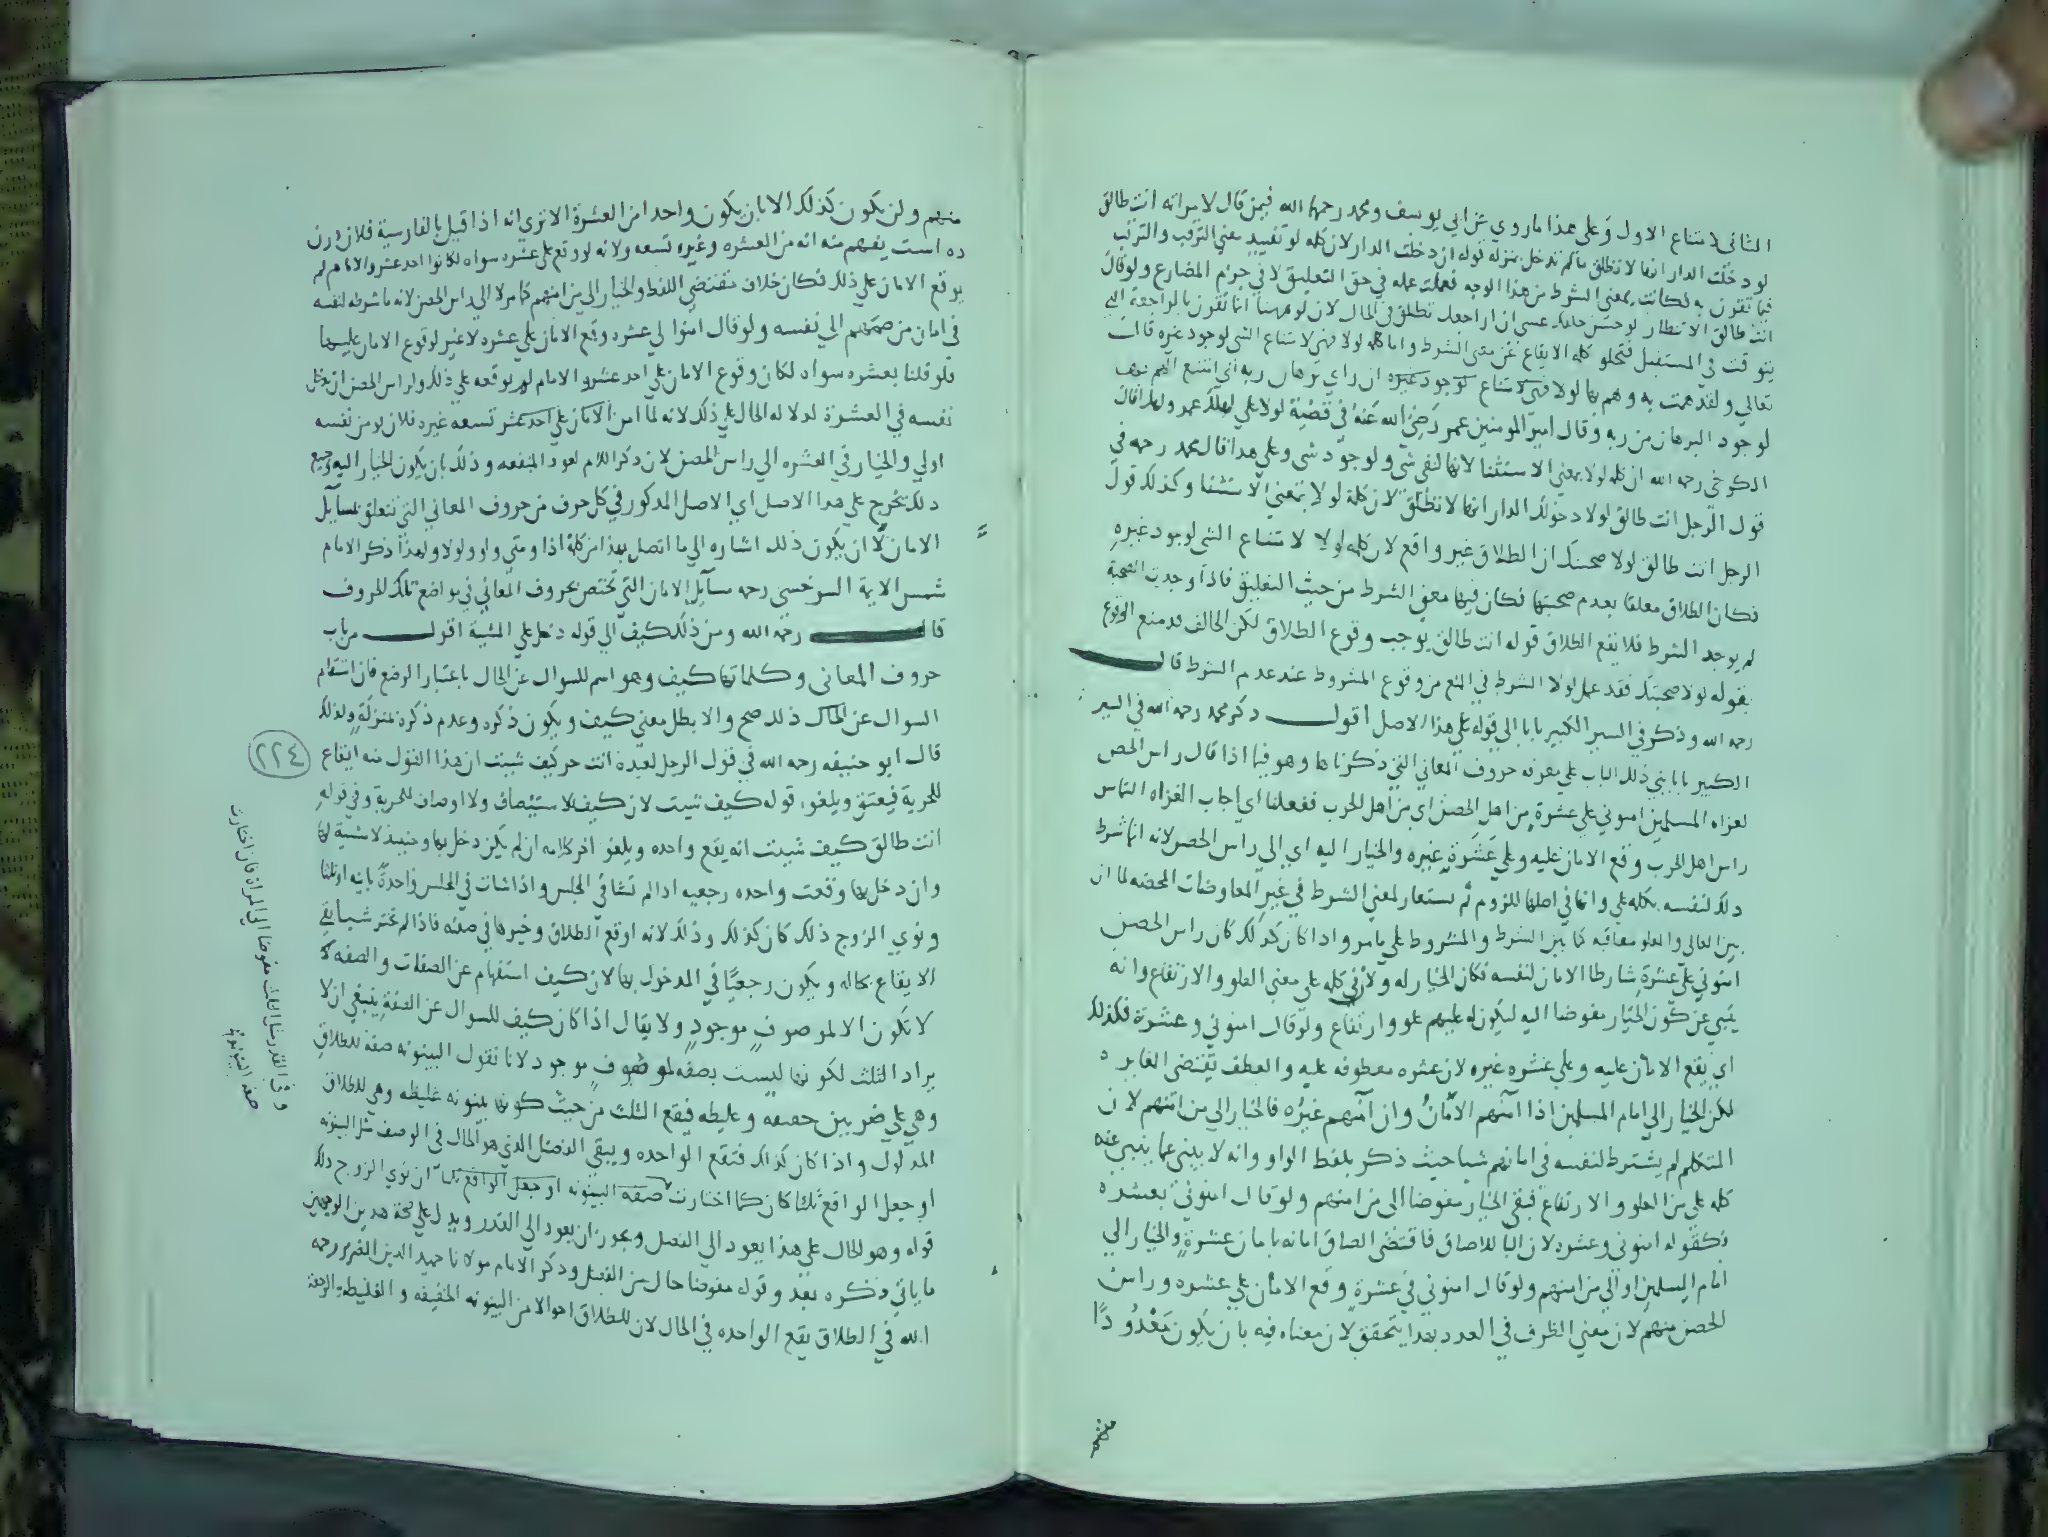 الثانى لامتناع الاول وعلى هذا ما روي عن ابي يوسف ومحمد رحمهما الله فيمن قال لامراته انت طالق
لو دخلت الدار انها لا تطلق ما لم تدخل بمنزله قوله ان دخلت الدار لان كله لو تفييد معني الترقب والترتب
فيما تقرن به لكانت بمعني الشرط من هذا الوجه فعملت عمله في حق التعليق لا في جزم المضارع ولو قال
انت طالق لو حسن خلقك عسى ان اراجعك تطلق في الحال لان لو ههنا انما تقرن بالمراجعة التي
الانتظار يتوقت في المستقبل فتخلو كله الايقاع عن معنى الشرط واما كله لولا فهي لامتناع الشى لوجود غيره قال الله
تعالي ولقد همت به وهم بها لولا ان راي برهان ربه اي امتنع الهم منه
لوجود البرهان من ربه وقال امير المومنين عمر رضي الله عنه في قضية لولا علي لهلك عمر ولهذا قال
الكرخي رحمه الله ان كله لولا بمعني الاستثنا لانها لنفي شى ولوجود شى وعلي هذا قال محمد رحمه في
قول الرجل انت طالق لولا دخولك الدار انها لا تطلق لان كلمة لولا بمعني الاستثنا وكذلك قول
الرجل انت طالق لولا صحبتك ان الطلاق غير واقع لان كله لولا لامتناع الشى لوجود غيره
فكان الطلاق معلقا بعدم صحبتها فكان فيها معنى الشرط من حيث التعليق فاذا وجدت الصحبة
لم يوجد الشرط فلا يقع الطلاق قوله انت طالق يوجب وقوع الطلاق لكن الحالف قد منع الوقوع
بقوله لولا صحبتك فقد عمل لولا الشرط في المنع من وقوع المشروط عند عدم الشرط قال
رحمه الله وذكر في السير الكبير بابا الي قوله علي هذا الاصل اقول ذكر محمد رحمه الله في السير
الكبير بابا بني ذلك الباب علي معرفه حروف المعاني التي ذكرناها وهو فيما اذا قال راس الحصن
لغزاه المسلمين امنوني علي عشرة من اهل الحصن اي من اهل الحرب ففعلنا اي اجاب الغزاه التماس
راس اهل الحرب وقع الامان عليه وعلي عشرة غيره والخيار اليه اي الي راس الحصن لانه انما شرط
ذلك لنفسه بكله علي وانها في اصلها للزوم ثم يستعار لمعني الشرط في غير المعاوضات المحضه لما ان
بين العالي والعلو معاقبه كما بين الشرط والمشروط علي ما مر واذا كان كذلك كان راس الحصن
امنوني علي عشرة شارطا الامان لنفسه فكان الخيار له ولان في كله علي معني العلو والارتفاع وانه
ينبي عن كون الخيار مفوضا اليه ليكون له عليهم علو وارتفاع ولو قال امنوني وعشرة فكذلك
اي يقع الامان عليه وعلي عشره غيره لان عشره معطوفه عليه والعطف يقتضى المغايره
لكن الخيار الي امام المسلمين اذا امنهم الامام وان امنهم غيره فالخيار الي من امنهم لان
المتكلم لم يشترط لنفسه في امانهم شيا حيث ذكر بلفظ الواو وانه لا ينبي عما ينبي عنه
كله علي من العلو والارتفاع فبقي الخيار مفوضا الى من امنهم ولو قال امنوني بعشره
فكقوله امنوني وعشره لان البا للالصاق فاقتضى الصاق امانه بامان عشرة والخيار الي
امام المسلمين او الي من امنهم ولو قال امنوني في عشرة وقع الامان علي عشره وراس
الحصن منهم لان معني الظرف في العدد بهذا يتحقق لان معناه فيه بان يكون معدودًا
منهم
منهم ولن يكون كذلك الا بان يكون واحدا من العشرة الا ترى انه اذا قيل بالفارسية فلان درين
ده است يفهم منه انه من العشره وغيره تسعه ولانه لو وقع علي عشره سواه لكانوا احد عشر والامام لم
يوقع الامان علي ذلك فكان خلاف مقتضي اللفظ والخيار الي من امنهم كما مر لا الي راس الحصن لانه ما شرطه لنفسه
في امان من ضمهم الي نفسه ولو قال امنوا لي عشره وقع الامان علي عشره لا غير لوقوع الامان عليها
فلو قلنا بعشره سواه لكان وقوع الامان علي احد عشر والامام لم يوقعه علي ذلك ولراس الحصن ان يدخل
نفسه في العشرة لدلاله الحال علي ذلك لانه لما امن الامان علي احد عشر تسعه غيره فلان يومن نفسه
اولي والخيار في العشره الي راس الحصن لان ذكر اللام لعود المنفعه وذلك بان يكون الخيار اليه وجميع
ذلك يخرج علي هذا الاصل اي الاصل المذكور في كل حرف من حروف المعاني التي تتعلق بمسآيل
الامان لا ان يكون ذلك اشاره الي ما اتصل بهذا من كله اذا ومتي ولو ولولا ولهذا ذكر الامام
شمس الايمة السرخسي رحمه مسآيل الامان التي تختص بحروف المعاني في مواضع تلك الحروف
قال رحمه الله ومن ذلك كيف الي قوله دخل علي المشية اقول من باب
حروف المعانى وكلماتها كيف وهو اسم للسوال عن الحال باعتبار الوضع فان استقام
السوال عن الحال فذلك صح والا بطل معني كيف ويكون ذكره وعدم ذكره بمنزلة ولذلك
قال ابو حنيفه رحمه الله في قول الرجل لعبده انت حر كيف شيت ان هذا القول منه ايقاع
للحرية فيعتق ويلغو قوله كيف شيت لان كيف للاستيصاف ولا اوصاف للحرية وفي قوله
انت طالق كيف شيت انه يقع واحده ويلغو اخر كلامه ان لم يكن دخل بها وحينيذ لا مشية لها
وان دخل بها وقعت واحده رجعيه اذا لم تشا في المجلس واذا شات في المجلس واحدة باينه او ثلثا
ونوي الزوج ذلك كان كذلك وذلك لانه اوقع الطلاق وخيرها في صفته فاذا لم تختر شيا بقي
الايقاع بحاله ويكون رجعيًا في المدخول بها لان كيف استفهام عن الصفات والصفه
لا تكون الا لموصوفٍ موجودٍ ولا يقال اذا كان كيف للسوال عن الصفة ينبغي ان لا
يراد الثلث لكونها ليست بصفه لموصوفٍ موجود لانا نقول البينونه صفة للطلاق
وهي علي ضربين خفيفه وغليظه فيقع الثلث من حيث كونها بينونه غليظه وهي للطلاق
المدلول واذا كان كذلك فتقع الواحده ويبقي الفضل الذي هو الحال في الوصف مثل البينونه
او جعل الواقع ثلثا كان كما اختارت صفة البينونه او جعل الواقع ثلثا ان نوي الزوج ذلك
قوله وهو الحال علي هذا يعود الي الفضل ويجوز ان يعود الي القدر ويدل علي صحة هذين الوجهين
ما ياتي ذكره بعد وقوله مفوضا حال من الفضل وذكر الامام مولانا حميد الدين الضرير رحمه
الله في الطلاق يقع الواحده في الحال لان للطلاق احوالا من البينونه الخفيفه والغليظه والرجعة
٢٢٤
وفي القدر مثل الثلث مفوضا الي المراة فان اختارت
صفة البينونة